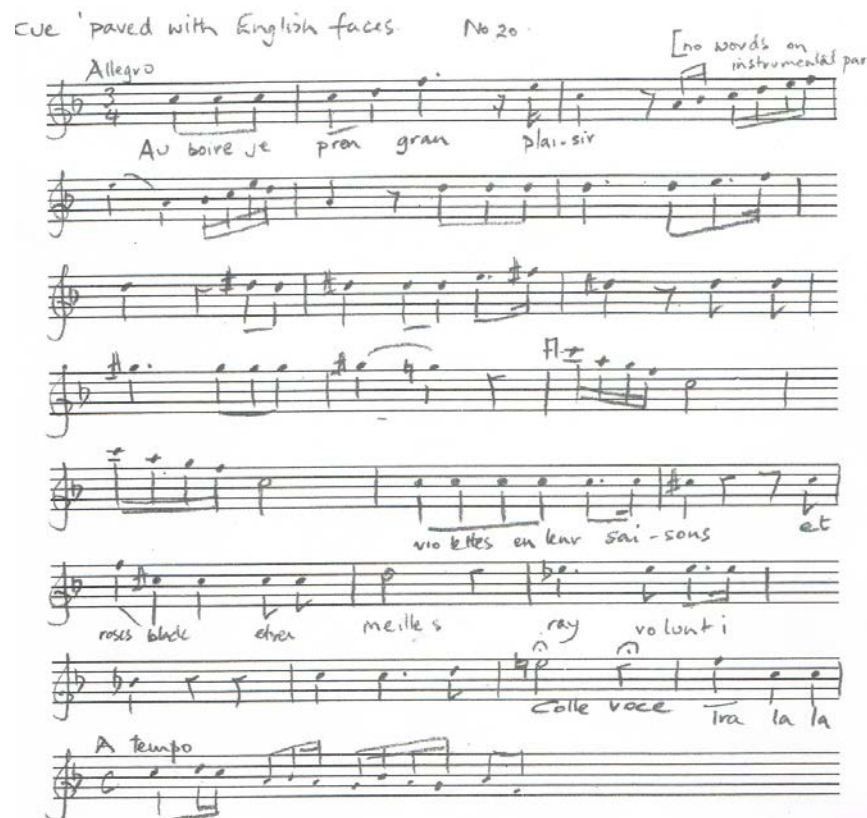 cue 'paved with English faces. No 20.
[no words on
Allegro
instrumental par
3
4
Au boire je pren gran plai-sir
Fl
violettes en leur sai-sons et
roses blache etver meilles ray volunti
colle voce Tra la la
A tempo
C